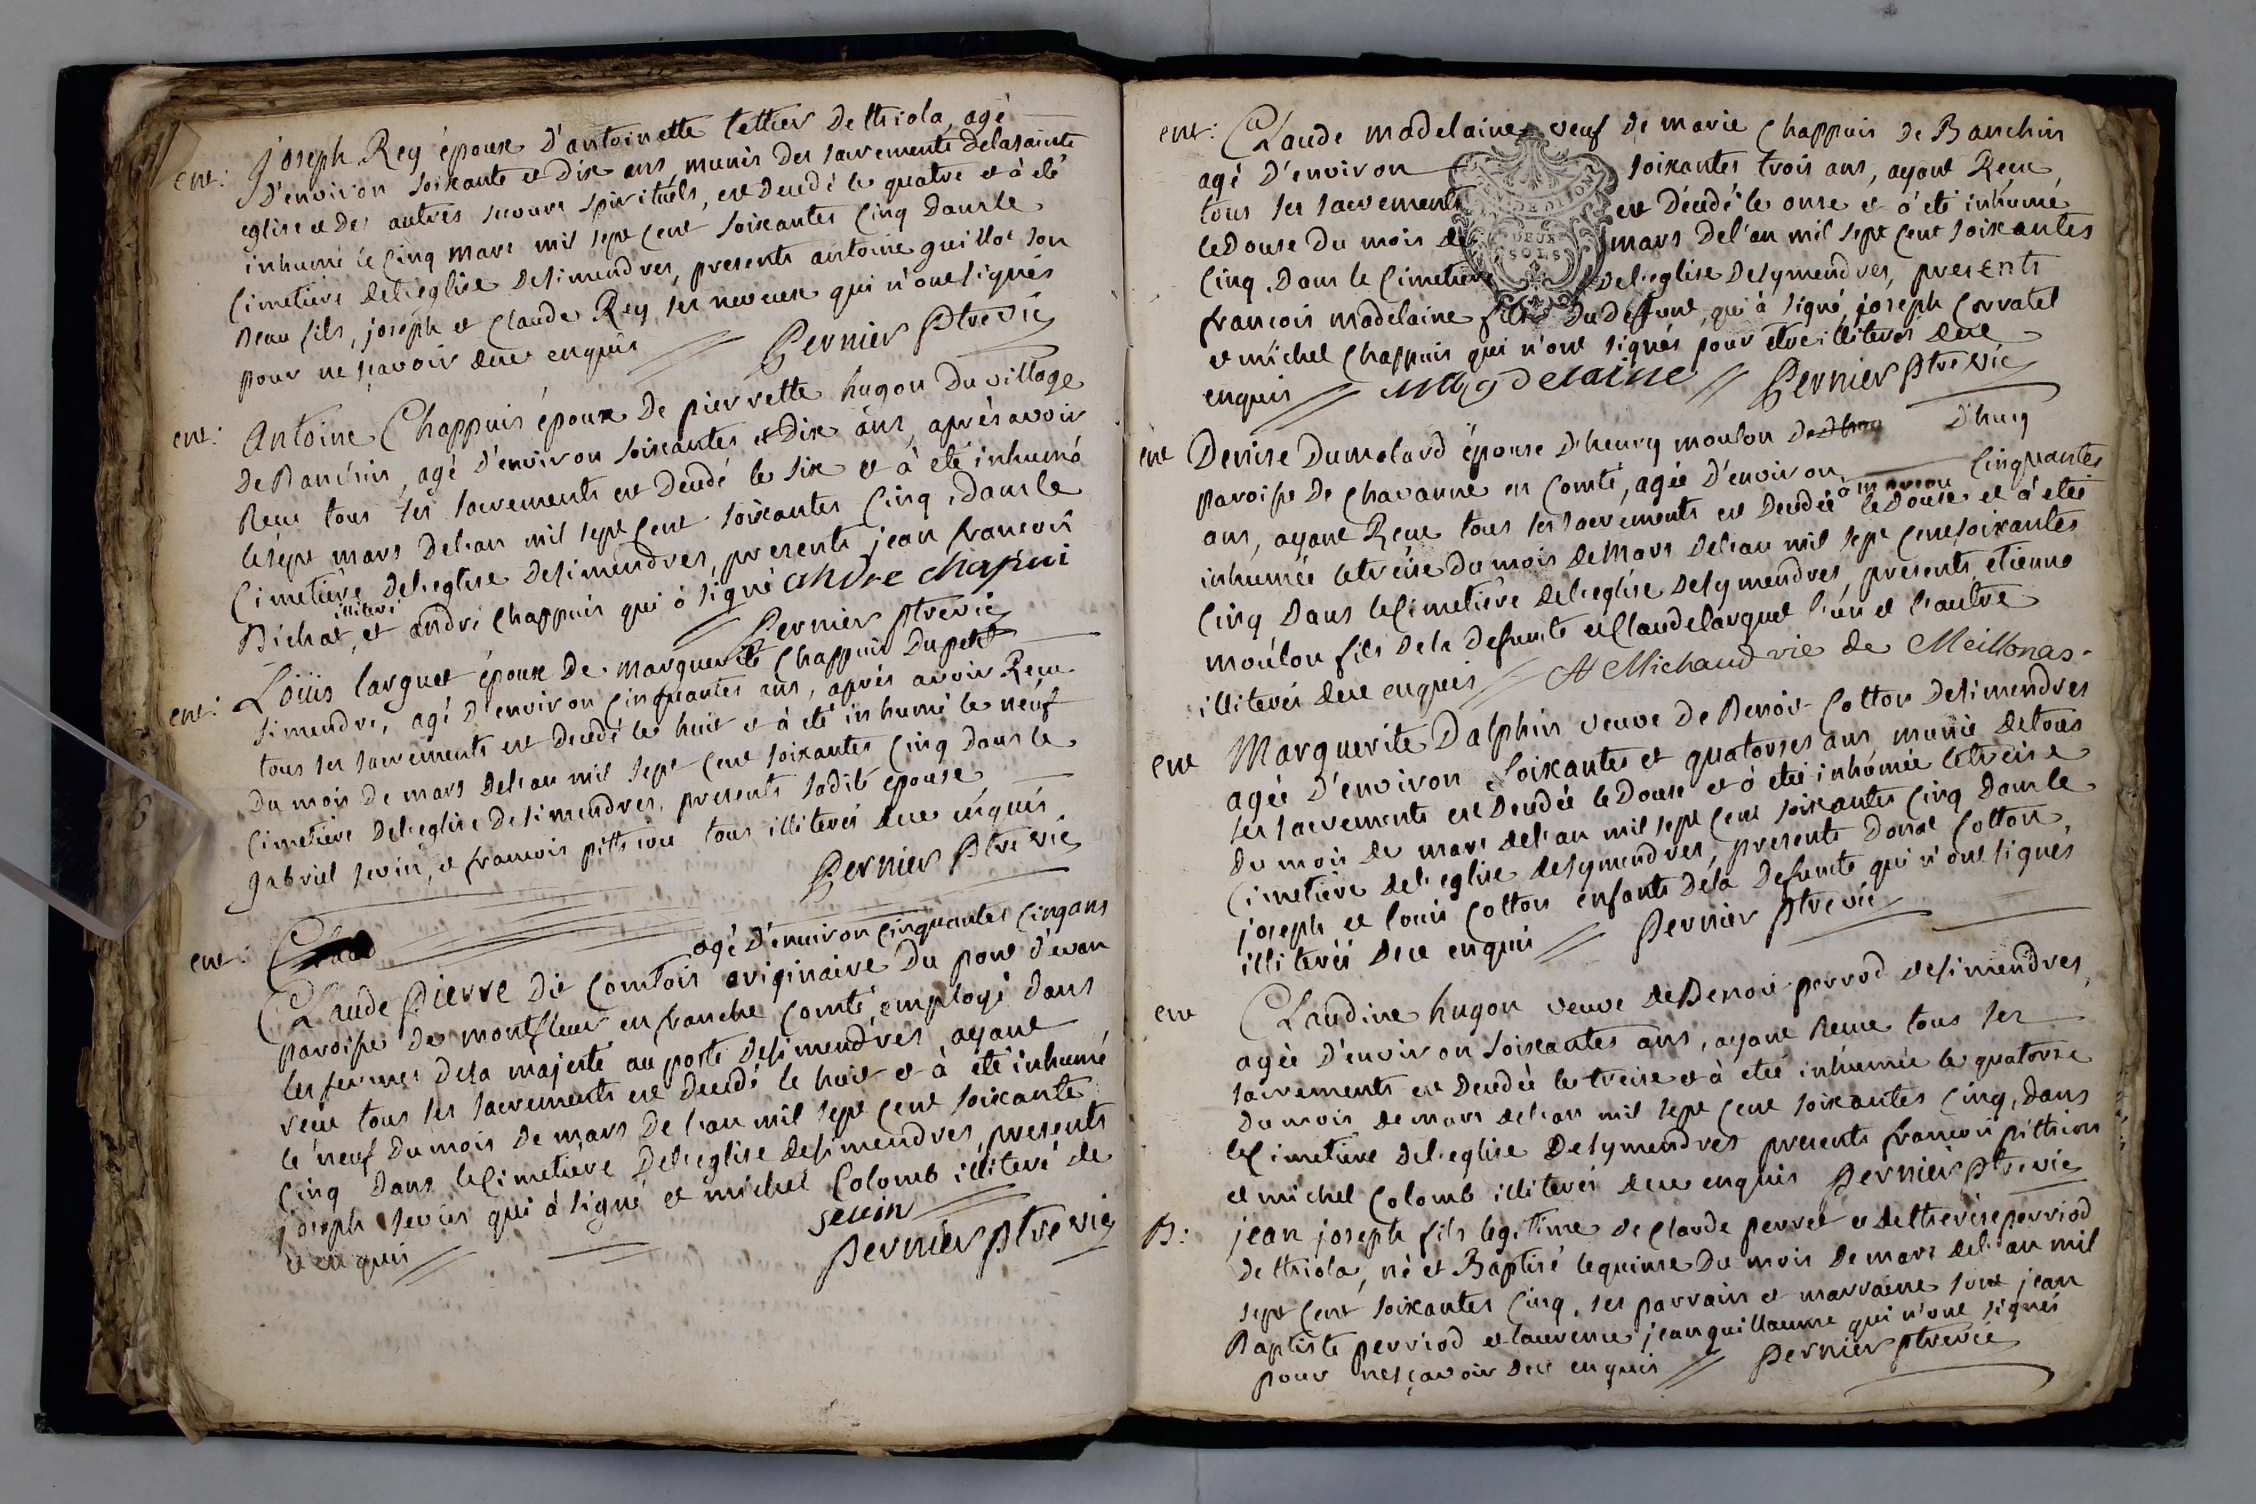 ent: joseph Rey époux d'antoinette tettier de thiola, agé
d'environ soixante et dix ans, munis des sacrements de la sainte
eglise et des autres secours spirituels, est decedé le quatre et à eté
inhumé le cinq mars mil sept cent soixantes cinq dans le
cimetiere de l'eglise de simendres, presents antoine guillot son
beau fils, joseph et claude Rey ses neveux qui n'ont signés
pour ne sçavoir de ce enquis // Pernier ptre vic
ent: antoine Chappuis époux de pierrette hugon du village
de Banchin, agé d'environ soixantes et dix ans, après avoir
Reçu tous ses sacrements est decedé le six et à eté inhumé
le sept mars de l'an mil sept cent soixantes cinq, dans le
cimetiere de l'eglise de simendres, presents jean francois
illiteré
Bichat, et andré chappuis qui à signé andre chapui
// Pernier ptre vic
ent: Loüis larguet époux de marguerite chappuis du petit
simendre, agé d'environ cinquantes ans, après avoir Reçu
tous ses sacrements est decedé le huit et à eté inhumé le neuf
du mois de mars de l'an mil sept cent soixantes cinq dans le
cimetiere de l'eglise de simendres, presents sadite epouse
gabriel sevin, et francois pittion tous illiterés de ce enquis
Pernier ptre vic
ent: Claud
agé d'environ cinquantes cinq ans
Claude Pierre dit comtois originaire du pont d'evan
paroisse de montfleur en franche comté, employé dans
les fermes de sa majesté au poste de simendres, ayant
reçu tous ses sacrements est decedé le huit et à eté inhumé
le neuf du mois de mars de l'an mil sept cent soixante
cinq dans le cimetiere de l'eglise de simendres, presents
joseph sevin qui à signé et michel colomb illiteré de
ce enquis // sevin //
Pernier ptre vic
ent: Claude madelaine veuf de marie chappuis de Banchin
agé d'environ soixantes trois ans, ayant Reçu
tous ses sacrements est decedé le onse et à eté inhumé
le douse du mois de mars de l'an mil sept cent soixantes
cinq, dans le cimetiere de l'eglise de symendres, presents
DEUX
SOLS
francois madelaine fils du deffunt, qui à signé, joseph corratel
et michel chappuis qui n'ont signés pour etre illiterés de ce
enquis // magdelaine // Pernier ptre vic
ent Denise Dumolard épouse d'henry moulon d'hucy
paroisse de chavanne en comté, agée d'environ cinquantes
ans, ayant Reçu tous ses sacrements est decedée le douse et à etée
inhumée le treise du mois de mars de l'an mil sept cent soixantes
cinq dans le cimetiere de l'eglise de symendres, presents etienne
moulon fils de la defunte et claude larguet l'un et l'autre
illiterés de ce enquis // Michaud vic de Meillonas.
ent Marguerite Dalphin veuve de Benoit cotton de simendres
agée d'environ soixantes et quatorses ans munie de tous
ses sacrements est decedée le douse et à etée inhumée le treise
du mois de mars de l'an mil sept cent soixantes cinq dans le
cimetiere de l'eglise de symendres, presents donat cotton,
joseph et louis cotton enfants de la defunte qui n'ont signés
illiterés de ce enquis // Pernier ptre vic
ent Claudine hugon veuve de Benoit perrod de simendres,
agée d'environ soixantes ans, ayant Reçue tous ses
sacrements est decedée le treise et à etée inhumée le quatorse
du mois de mars de l'an mil sept cent soixantes cinq, dans
le cimetiere de l'eglise de symendres presents francois pithion
et michel colomb illiterés de ce enquis Pernier ptre vic
B: jean joseph fils legitime de claude perret et de therese perriod
de thiola, né et Baptisé le quinse du mois de mars de l'an mil
sept cent soixantes cinq, ses parrain et marraine sont jean
Baptiste perriod et laurence jeanguillaume qui n'ont signés
pour ne sçavoir de ce enquis // Pernier ptre vic